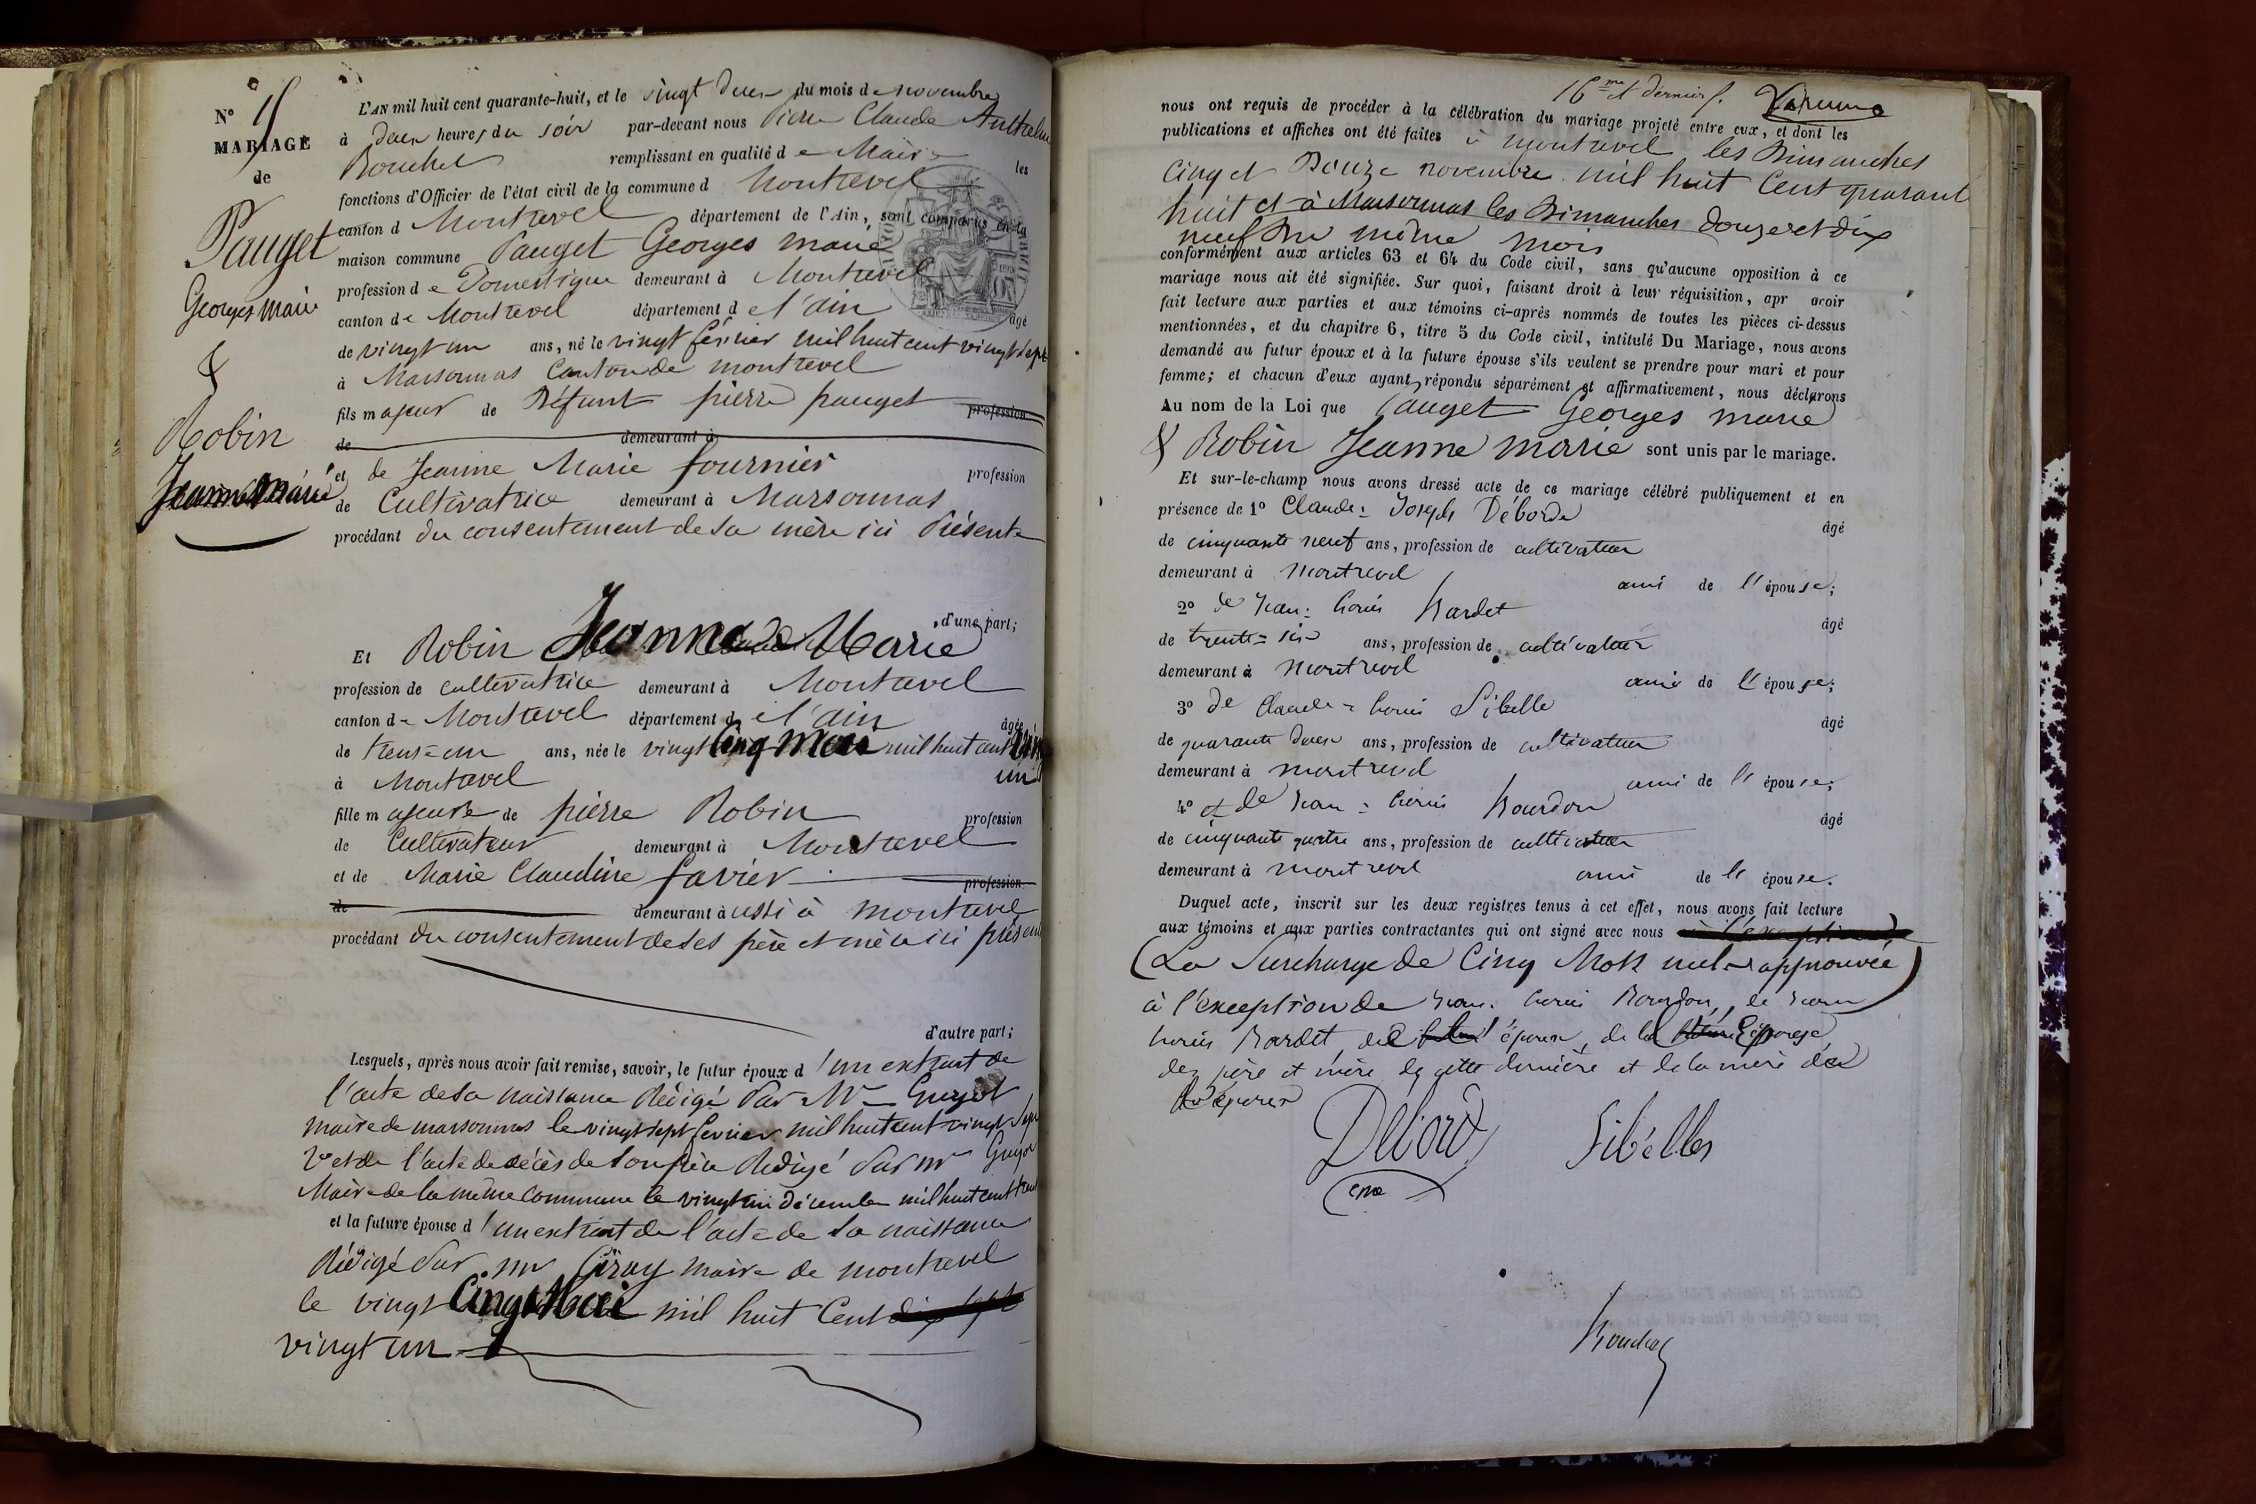 N° 15
MARIAGE
de
Pauget
Georges Marie
&
Robin
Jeanne Marie
L'AN mil huit cent quarante-huit, et le vingt deux du mois de novembre
à deux heures du soir par-devant nous Pierre Claude Anthelme
Bouchet remplissant en qualité de Maire les
fonctions d'Officier de l'état civil de la commune d Montrevel
canton d Montrevel département de l'Ain, sont comparus en la
maison commune Pauget Georges marie
profession de Domestique demeurant à Montrevel
canton de Montrevel département de l'ain âgé
de vingt un ans, né le vingt février mil huit cent vingt sept
à Marsonnas Canton de montrevel
fils majeur de Défunt pierre pauget profession
de demeurant à
et de Jeanne Marie fournier profession
de Cultivatrice demeurant à Marsonnas
procédant du consentement de sa mère ici Présente
d'une part;
Et Robin Jeanne Marie
profession de cultivatrice demeurant à Montrevel
canton de Montrevel département de l'ain âgée
de trente un ans, née le vingt Cinq Mai mil huit cent
un
à Montrevel
fille majeure de pierre Robin profession
de Cultivateur demeurant à Montrevel
et de Marie Claudine favier profession
de demeurant aussi à montrevel
procédant du consentement de ses père et mère ici présents
d'autre part;
Lesquels, après nous avoir fait remise, savoir, le futur époux d'un extrait de
l'acte de sa naissance Rédigé Par Mr Guyot
maire de marsonnas le vingt sept fevrier mil huit cent vingt sept
et de l'acte de décès de son père Rédigé Par mr Guyot
Maire de la même commune le vingt un décembre mil huit cent
et la future épouse d'un extrait de l'acte de sa naissance
Rédigé Par mr maire de montrevel
le vingt Cinq Mai mil huit Cent dix sept
vingt un
16me et dernier f.
nous ont requis de procéder à la célébration du mariage projeté entre eux, et dont les
publications et affiches ont été faites à montrevel les Dimanches
Cinq et Douze novembre mil huit Cent quarante
huit et à Marsonnas les Dimanches douze et dix
neuf Du même mois
conformément aux articles 63 et 64 du Code civil, sans qu'aucune opposition à ce
mariage nous ait été signifiée. Sur quoi, faisant droit à leur réquisition, apr avoir
fait lecture aux parties et aux témoins ci-après nommés de toutes les pièces ci-dessus
mentionnées, et du chapitre 6, titre 5 du Code civil, intitulé Du Mariage, nous avons
demandé au futur époux et à la future épouse s'ils veulent se prendre pour mari et pour
femme; et chacun d'eux ayant répondu séparément et affirmativement, nous déclarons
Au nom de la Loi que Pauget Georges marie
& Robin Jeanne marie sont unis par le mariage.
Et sur-le-champ nous avons dressé acte de ce mariage célébré publiquement et en
présence de 1° Claude-Joseph Déborde âgé
de cinquante neuf ans, profession de cultivateur
demeurant à Montrevel ami de l'épouse;
2° de Jean-Louis Bardet âgé
de trente-six ans, profession de cultivateur
demeurant à Montrevel ami de l'épouse;
3° de Claude-Louis Sibelle âgé
de quarante deux ans, profession de cultivateur
demeurant à montrevel ami de l'épouse;
4° et de Jean-Louis Bourdon âgé
de cinquante quatre ans, profession de cultivateur
demeurant à montrevel ami de l'épouse.
Duquel acte, inscrit sur les deux registres tenus à cet effet, nous avons fait lecture
aux témoins et aux parties contractantes qui ont signé avec nous à l'exception de
(La Surcharge de Cinq Mots nuls approuvée)
à l'exception de Jean-Louis Bourdon, de Jean
Louis Bardet, de l'époux, de la Epouse
des père et mère de cette dernière et de la mère de
époux
Débord
Sibélles
cme
Bouchet